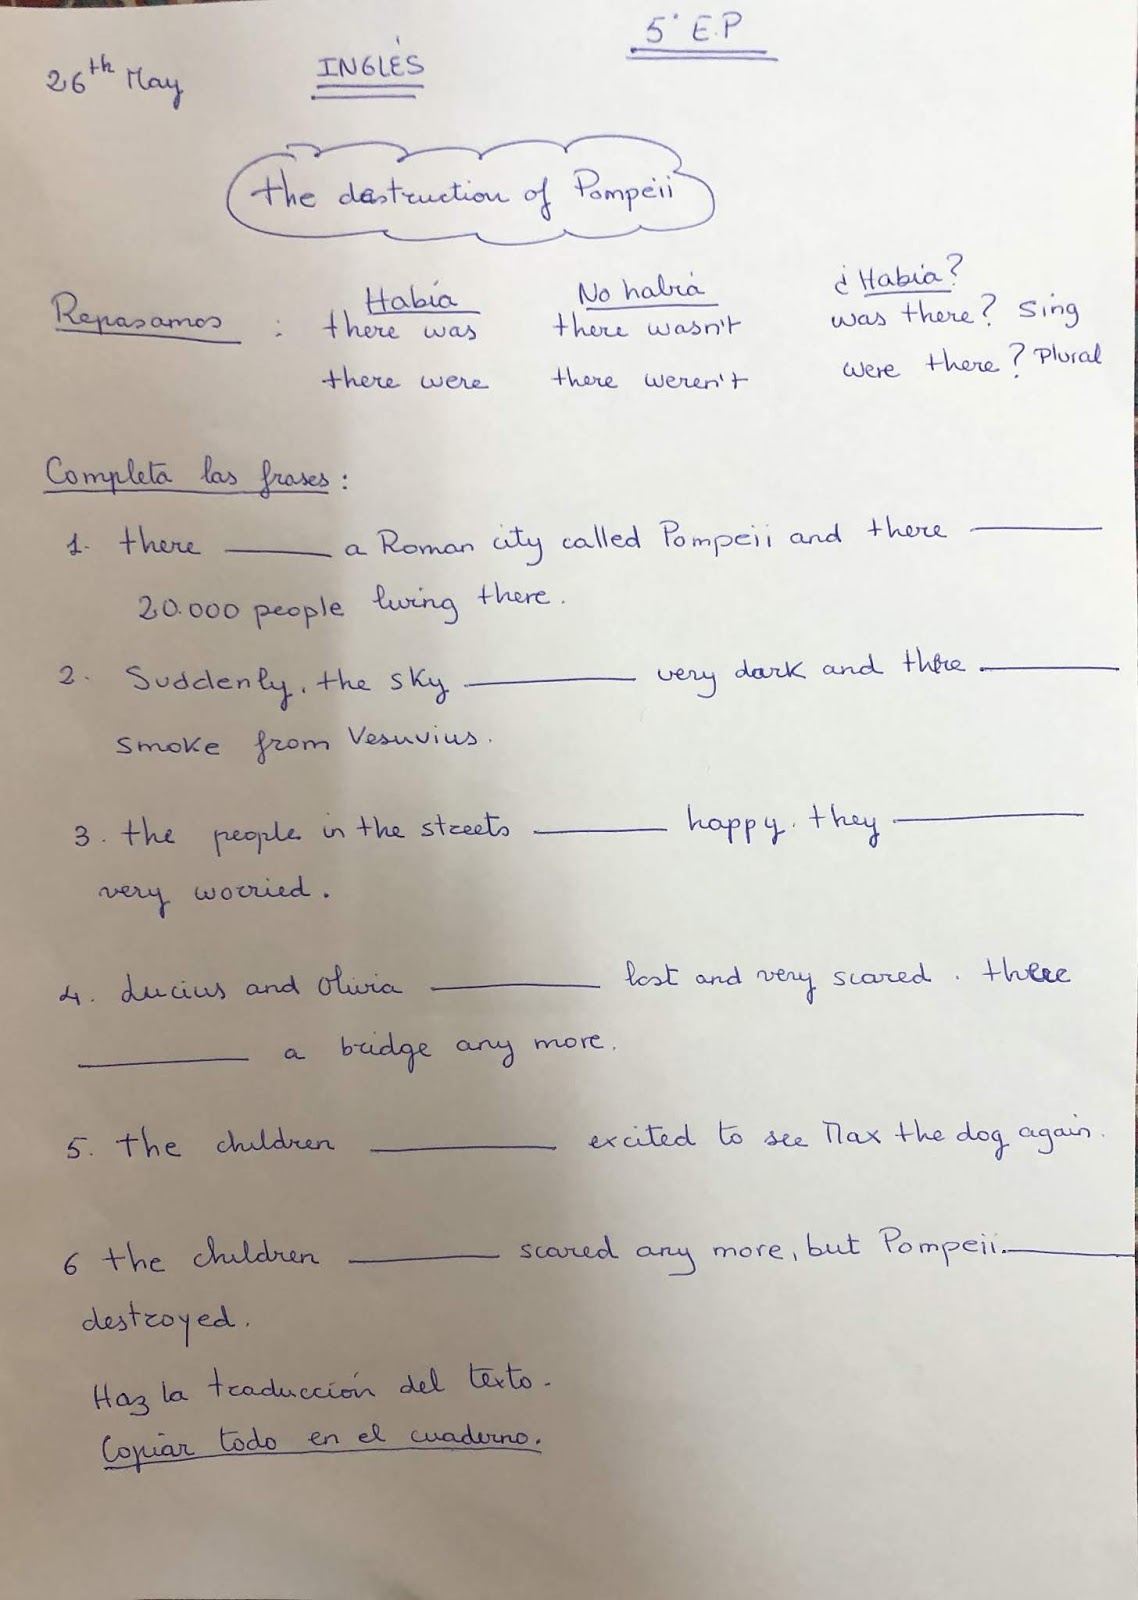 26th May INGLÉS 5º E.P
the destruction of Pompeii
Repasamos : Había No había ¿Había?
there was there wasn't was there? Sing
there were there weren't were there? Plural
Completa las frases:
1. there ______ a Roman city called Pompeii and there ______
20.000 people living there.
2. Suddenly, the sky ______ very dark and there ______
smoke from Vesuvius.
3. the people in the streets ______ happy. they ______
very worried.
4. Lucius and Olivia ______ lost and very scared. there
______ a bridge any more.
5. the children ______ excited to see Max the dog again.
6 the children ______ scared any more, but Pompeii ______
destroyed.
Haz la traducción del texto.
Copiar todo en el cuaderno.